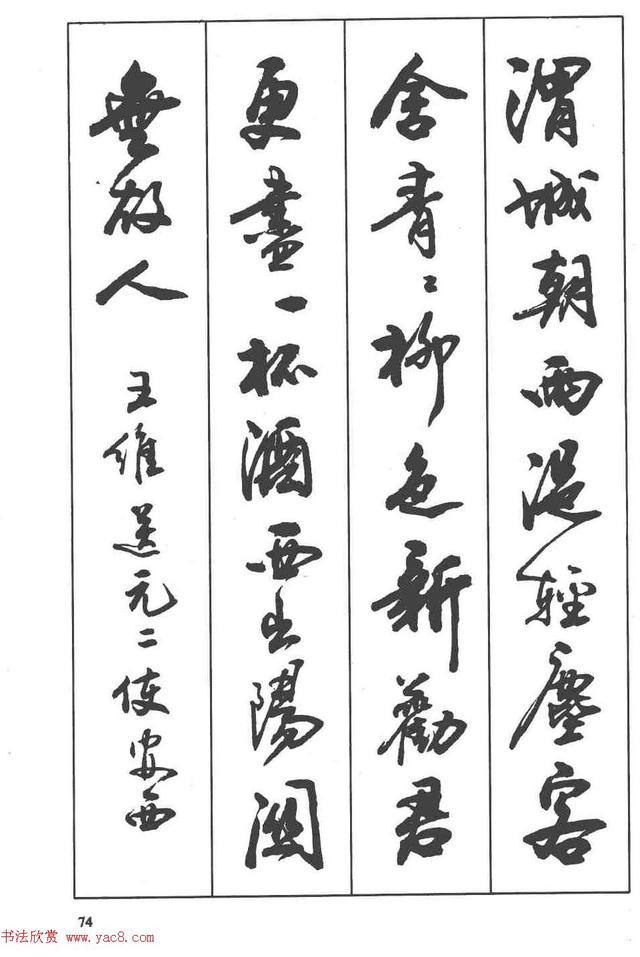 渭城朝雨浥輕塵客
舍青〻柳色新勸君
更盡一杯酒西出陽關
無故人
王維送元二使安西
74
书法欣赏 www.yac8.com